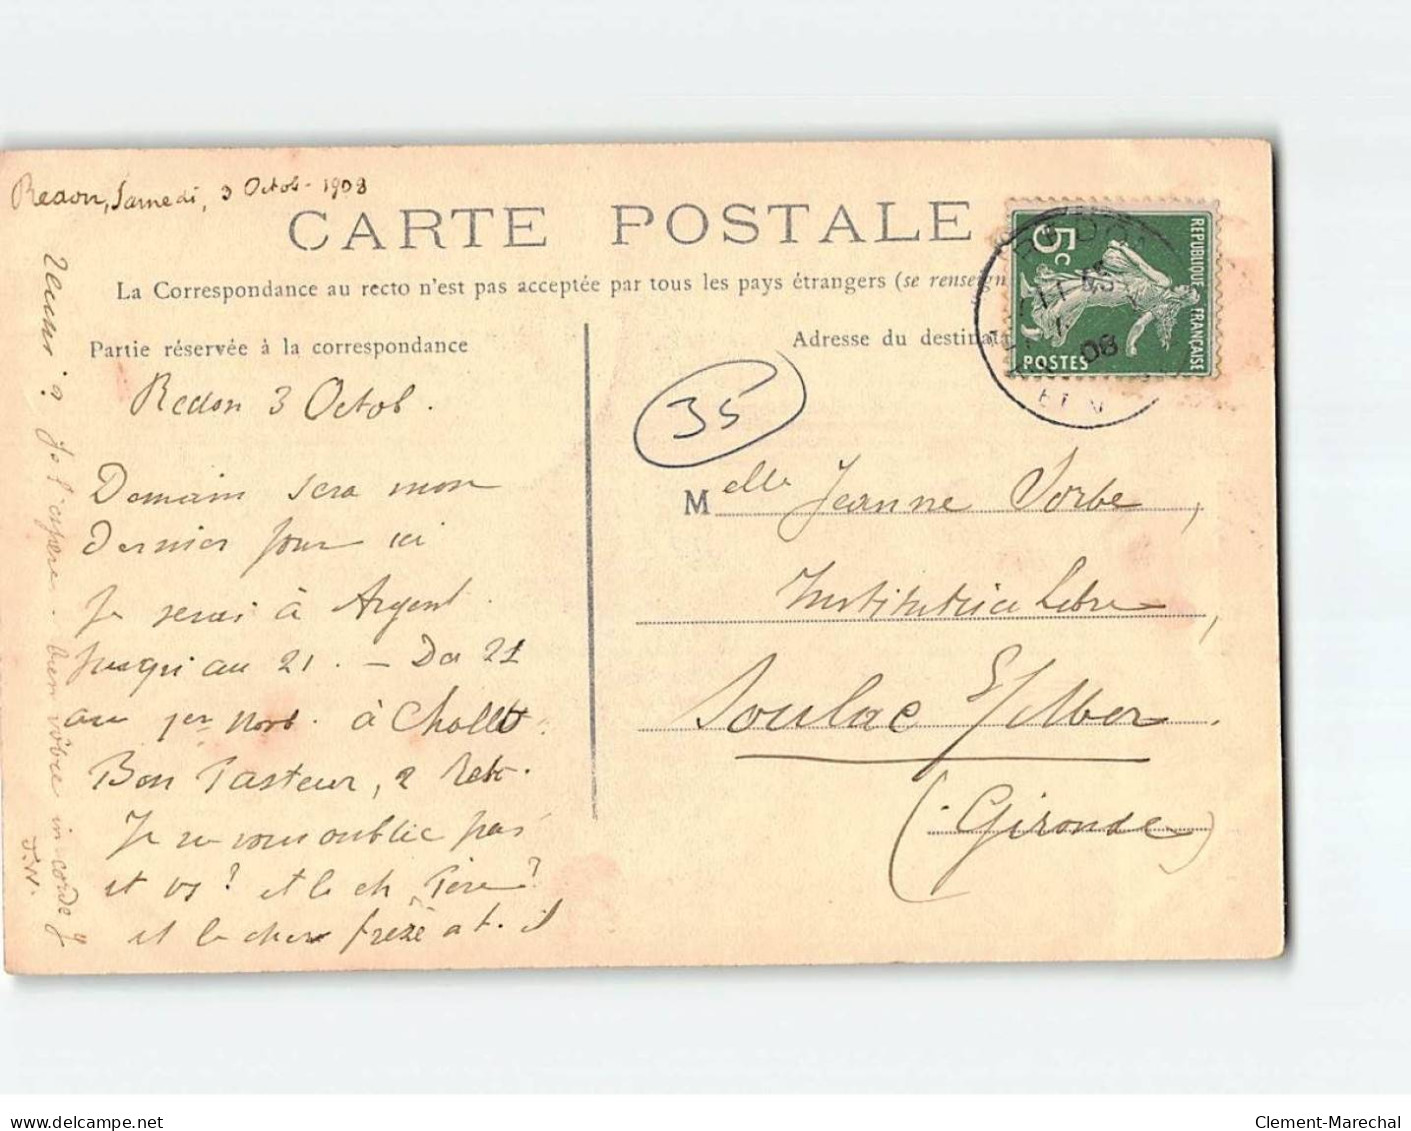 Redon, Samedi, 3 Octob. 1908
CARTE POSTALE
La Correspondance au recto n'est pas acceptée par tous les pays étrangers (se renseign
Partie réservée à la correspondance
Adresse du destinat
RÉPUBLIQUE FRANÇAISE
5c
POSTES
REDON
08
35
Redon 3 Octob.
Demain sera mon
dernier jour ici
Je serai à Argent.
jusqu'au 21. – Du 21
au 1er Novb. à Chollet
Bon Pasteur, 2 Retr.
Je ne vous oublie pas
et vs? et le ch. Père?
et le cher frère a t. il
? Je l'espère. bien vôtre in corde J
J.N.
Melle Jeanne Sorbe,
Institutrice Libre,
Soulac S/Mer.
(Gironde)
delcampe.net
Clement-Marechal